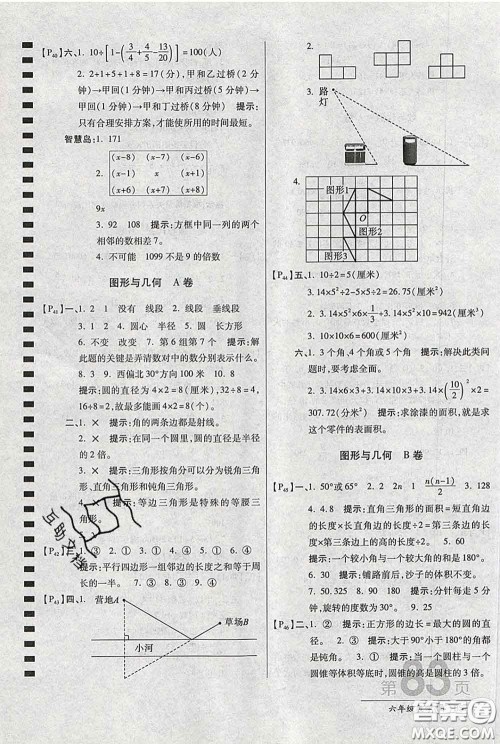 [P₄₀]六、1. 10÷[1-(3/4+4/5-13/20)]=100(人)
2. 2+1+5+1+8=17(分),甲和乙过桥(2分
钟)→甲回(1分钟)→甲和丙过桥(5分
钟)→甲回(1分钟)→甲和丁过桥(8分钟)
→甲和丁过桥(8分钟) 提示:
只有合理安排方案,才能使所用的时间最短。
智慧岛:1. 171
2. (x-8) (x-7) (x-6)
(x-1) x (x+1)
(x+6) (x+7) (x+8)
9x
3. 92 108 提示:方框中同一列的两个
相邻的数相差7。
4. 不可能 1099不是9的倍数
图形与几何 A卷
一、1. 2 1 没有 线段 线段 垂线段
3. 1 2 4. 圆心 半径 5. 圆 长方形
6. 不变 改变 7. 第6组第7个 提示:解
此题的关键是弄清数对中的数分别表示什么。
8. 3 9. 西偏北30°方向 10. 8
提示:圆的直径为4×2=8(厘米),32÷8=4,
16÷8=2,故最多可剪4×2=8(个)。
二、1. × 提示:角的两条边都是射线。
2. × 提示:在同一个圆里,圆的直径是半径
的2倍。
3. × 提示:三角形按角分可以分为锐角三角
形、直角三角形和钝角三角形。
提示:等边三角形是特殊的等腰三
角形。
1. ③ 2. ① 3. ② 4. ① 5. ③
6. ② 提示:平行四边形一组邻边的长度之和等于周
长的一半。 7. ③ 8. ③ 9. ③ 10. ①
四、1. 营地A
草场B
小河
2.
3. 路灯
4. 图形1
O
图形2
图形3
五、1. 10÷2=5(厘米)
2. 3.14×5²÷2-5×5÷2=26.75(厘米²)
3. 3.14×5²×6×1/3+3.14×5²×10=942(厘米³)
3. 10×10×6=600(厘米²)
六、1. 3个角、4个角或5个角 提示:解决此类问
题时,要考虑全面。
2. 3.14×6×3+3.14×4×5+3.14×(10/2)²×2=
307.72(平方厘米) 提示:求涂漆的面积,就是求
这个零件的表面积。
图形与几何 B卷
一、1. 50°或65° 2. 2 2n 1 n(n-1)/2 3. 128
4. 4.8 提示:直角三角形的面积=短直角边
的长度×长直角边的长度÷2=第三条边的长
度×第三条边上的高的长度÷2。 5. 90°
提示:一个较小角与一个较大角的和是180°。
6. 30 提示:铺路前后,沙子的体积不变。
7. 50.325 8. 90° 提示:分针从12走到3,
旋转的度数为30°×3=90°。 9. 25
二、1. ② 提示:正方形的边长=最大的圆的直
径。 2. ① 提示:大于90°小于180°的角都
是钝角。 3. ② 4. ① 提示:当一个圆柱与一个
圆锥体积等底时,圆锥的高是圆柱的3倍。
第83页
六年级
答案圈
MXQE.COM